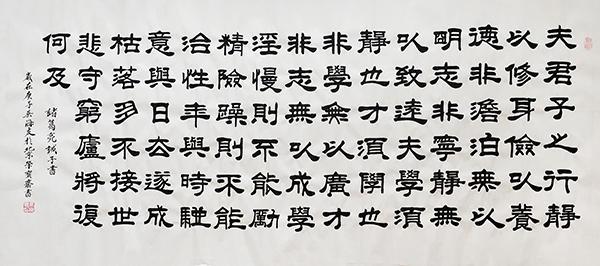 夫君子之行靜
以修身儉以養
德非澹泊無以
明志非寧靜無
以致遠夫學須
靜也才須學也
非學無以廣才
非志無以成學
淫慢則不能勵
精險躁則不能
治性年與時馳
意與日去遂成
枯落多不接世
悲守窮廬將復
何及
諸葛亮誡子書
歲在庚子吳海文於京齋書